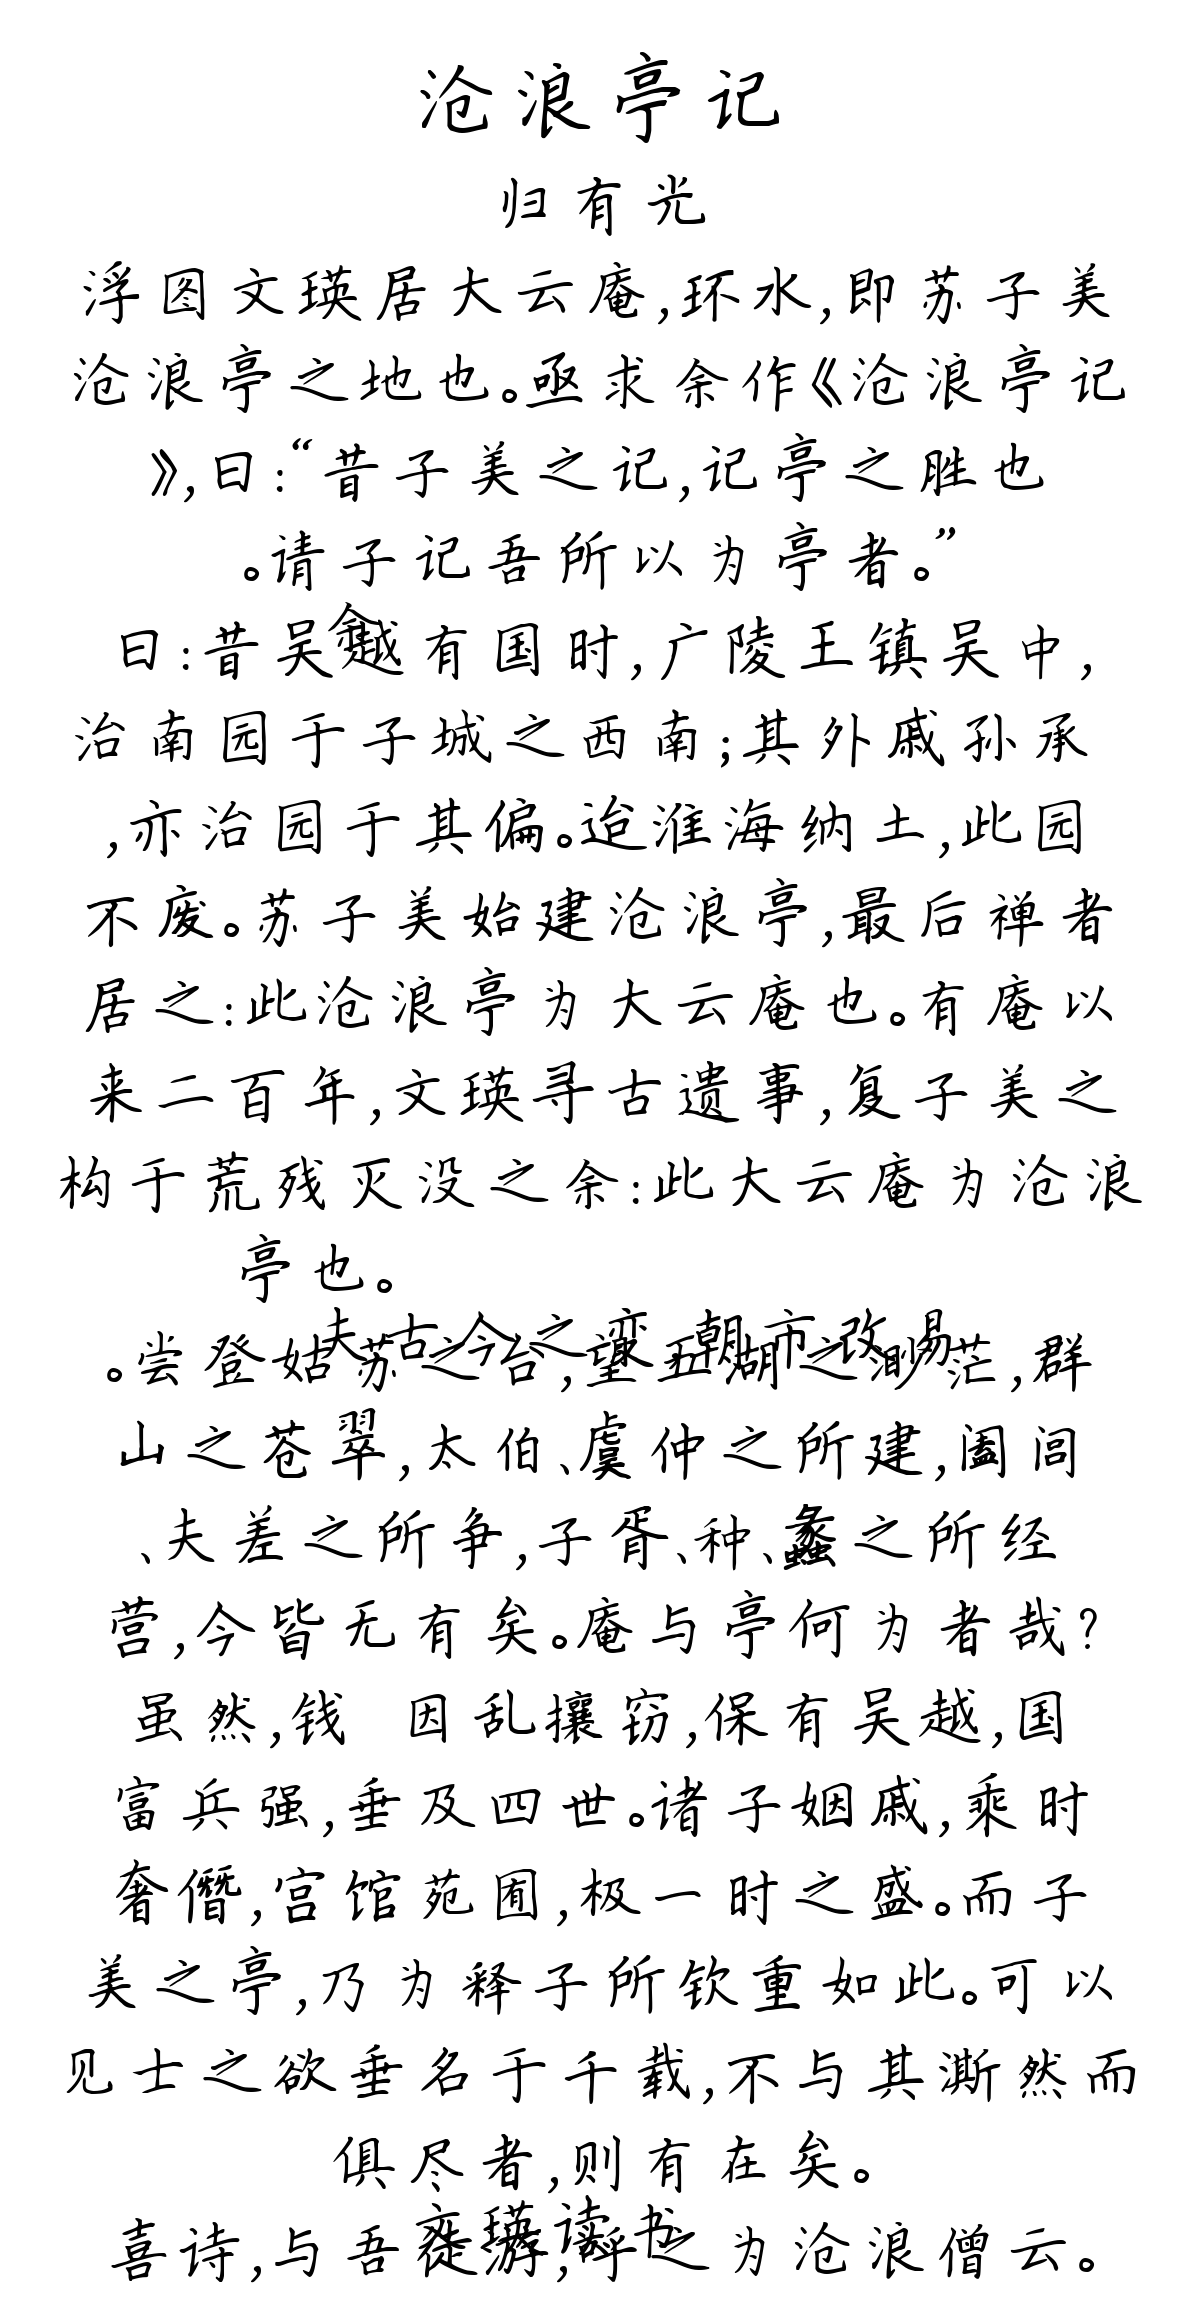 沧浪亭记
归有光
浮图文瑛居大云庵,环水,即苏子美
沧浪亭之地也。亟求余作《沧浪亭记
》,曰:“昔子美之记,记亭之胜也
。请子记吾所以为亭者。”
余
曰:昔吴越有国时,广陵王镇吴中,
治南园于子城之西南;其外戚孙承
,亦治园于其偏。迨淮海纳土,此园
不废。苏子美始建沧浪亭,最后禅者
居之:此沧浪亭为大云庵也。有庵以
来二百年,文瑛寻古遗事,复子美之
构于荒残灭没之余:此大云庵为沧浪
亭也。
夫古今之变,朝市改易
。尝登姑苏之台,望五湖之渺茫,群
山之苍翠,太伯、虞仲之所建,阖闾
、夫差之所争,子胥、种、蠡之所经
营,今皆无有矣。庵与亭何为者哉?
虽然,钱 因乱攘窃,保有吴越,国
富兵强,垂及四世。诸子姻戚,乘时
奢僭,宫馆苑囿,极一时之盛。而子
美之亭,乃为释子所钦重如此。可以
见士之欲垂名于千载,不与其澌然而
俱尽者,则有在矣。
文瑛读书
喜诗,与吾徒游,呼之为沧浪僧云。